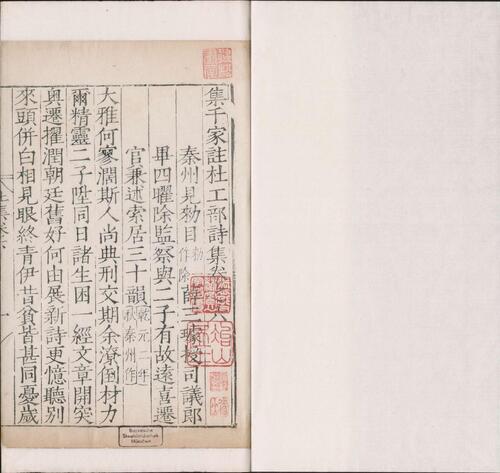 集千家註杜工部詩集卷之六
秦州見勑目勑一作除薛三璩授司議郎
畢四曜除監察與二子有故遠喜遷
官兼述索居三十韻乾元二年秋秦州作
大雅何寥濶斯人尚典刑交期余潦倒材力
爾精靈二子陞同日諸生困一經文章開突
奥遷擢潤朝廷舊好何由展新詩更憶聽別
來頭併白相見眼終青伊昔貧皆甚同憂歲
Bayerische
Staatsbibliothek
München